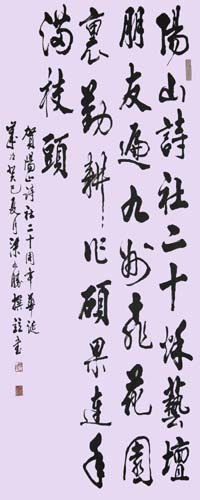 陽山詩社二十秌藝壇
朋友遍九州花園
裏勤耕作碩果連年
滿枝頭
賀陽山詩社二十周年華誕
癸巳夏月梁勝撰並書